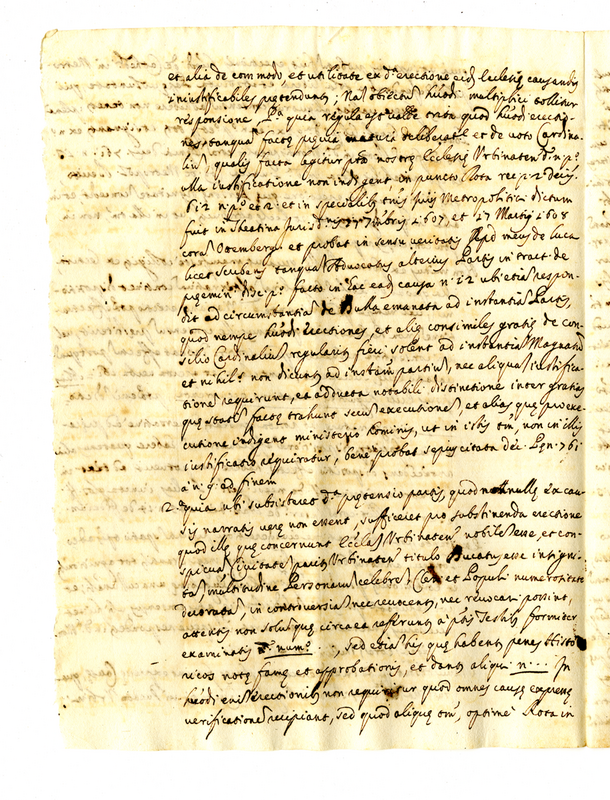 et alia de commodo et utilitate ex d.ᵃ erectione eid. Ecclesię causandis
iniustificabiles prętendunt; Nā obiectus hmōi multiplici tollitur
responsione, P.ᵃ quia regula est valde trita quod hmōi erectio-
nes tanquā factę pręvia maturi deliberatᵉ et de voto Cardina-
liū, qualis facta legitur pro nostra Ecclesia Urbinaten. in p.º
ulla iustificatione non indigent in puncto Rota rec. p. 2 decis.
612 n.º p.º et 2. et in
fuit in Theatina Jurisd.nis 7mbris 1607, et 17 Martij 1608
corā Ottemberg. et probat in sensu veritatis meus de Luca
licet scribens tanquā Advocatus alterius Partis in tract. de
pręemin. disc. p.º facto in hac eād. causa n.º 12 ubi etiā respon-
det ad circumstantiā de Bulla emanata ad instantiā Partis,
quod nempe hmōi Erectiones, et alię consimiles gratię de con-
silio Cardinaliū regulariter fieri solent ad instantiā Magnatū
et nihil. non dicunt ad instām partiū, nec aliquā iustifica-
tionē requirunt, et adducta notabili distinctione inter gratias
quę statī factę trahunt secū executionē, et alias quę pro exe-
cutione indigent ministerio hominis, ut in istis tm̄, non in illis
iustificatio requiratur; bene probat sępius citata dec. 761
a n. 9 ad finem
2.º quia ubi subsisteret d.ᵃ prętensio partis, quod nonnullę ex cau-
sis narratis verę non essent, sufficeret pro substinenda erectione
quod illę quę concernunt Ecclesiā Urbinaten. nobilē esse, et con-
spicuā, Civitatē pariter Urbinaten. titulo Ducatus esse insigni-
tā, multitudine Personarū celebrē, Cleri et Populi numerositate
decoratā, in controversiā nec revocent, nec revocari possint,
attentis non solū quę circa ea referunt a p.tis Testis formiter
examinatis num.º ..., sed etiā his quę habent penes Histo-
ricos notę famę et approbationis, et dant aliqui n... In
hmōi enim erectionib. non requiritur quod omnes causę expressę
verificationē recipiant, sed quod aliqua tm̄, optime Rota in